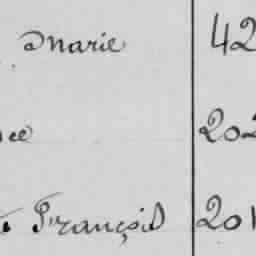 Marie 42
ee 202
François 201